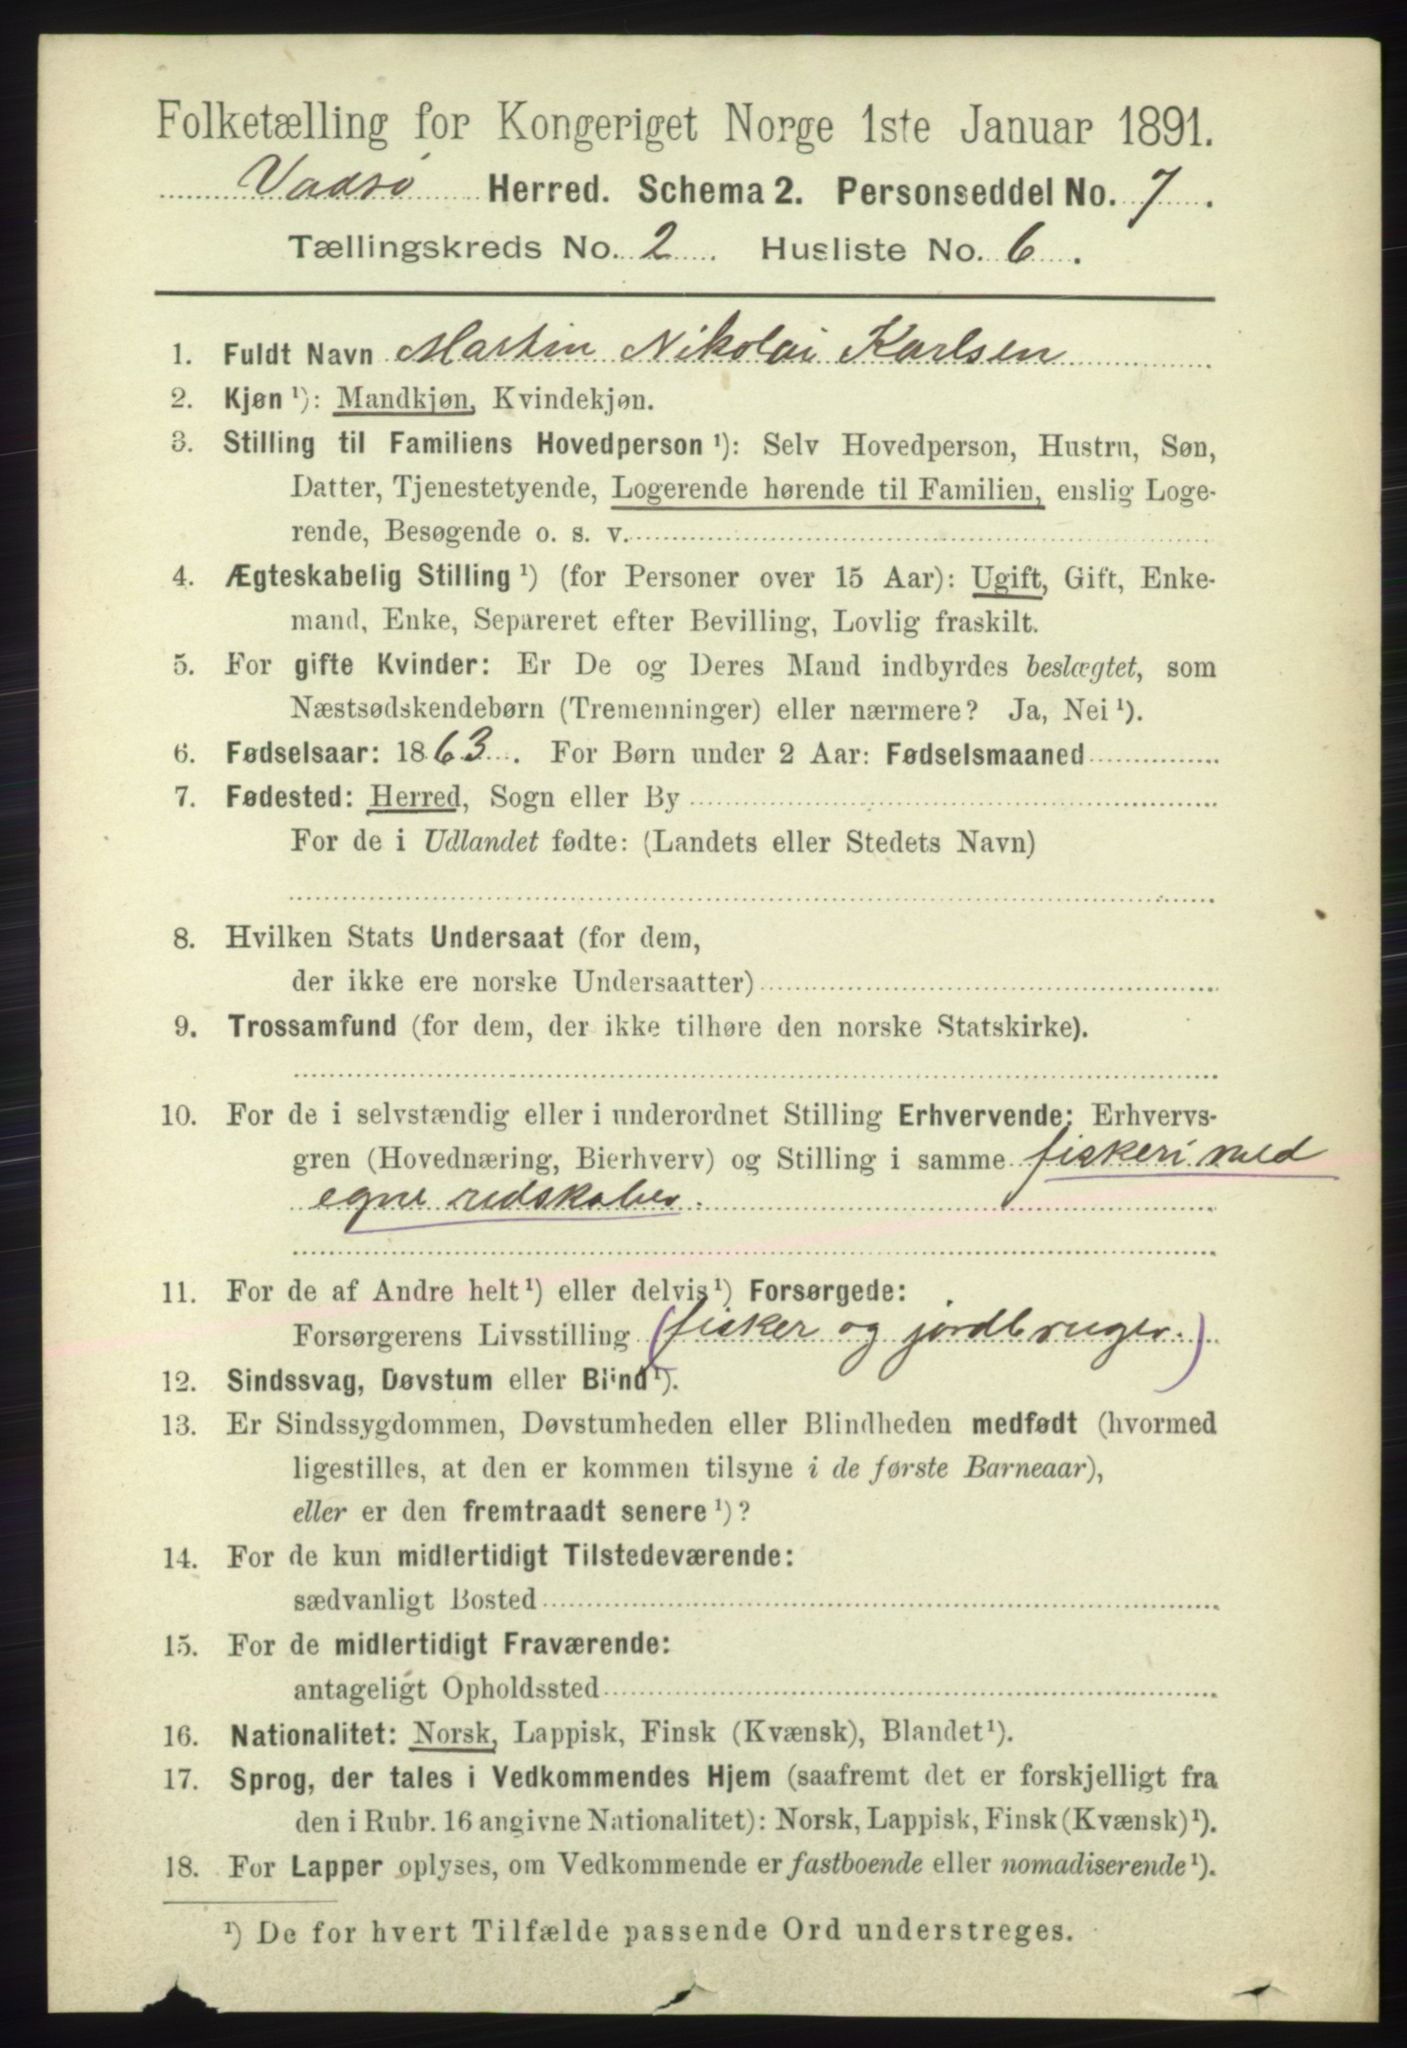 Folketælling for Kongeriget Norge 1ste Januar 1891.
Vadsø Herred. Schema 2. Personseddel No. 7.
Tællingskreds No. 2. Husliste No. 6.
1. Fuldt Navn Martin Nikolai Karlsen
2. Kjøn ¹): Mandkjøn, Kvindekjøn.
3. Stilling til Familiens Hovedperson ¹): Selv Hovedperson, Hustru, Søn,
Datter, Tjenestetyende, Logerende hørende til Familien, enslig Loge-
rende, Besøgende o. s. v.
4. Ægteskabelig Stilling ¹) (for Personer over 15 Aar): Ugift, Gift, Enke-
mand, Enke, Separeret efter Bevilling, Lovlig fraskilt.
5. For gifte Kvinder: Er De og Deres Mand indbyrdes beslægtet, som
Næstsødskendebørn (Tremenninger) eller nærmere? Ja, Nei ¹).
6. Fødselsaar: 1863. For Børn under 2 Aar: Fødselsmaaned
7. Fødested: Herred, Sogn eller By
For de i Udlandet fødte: (Landets eller Stedets Navn)
8. Hvilken Stats Undersaat (for dem,
der ikke ere norske Undersaatter)
9. Trossamfund (for dem, der ikke tilhøre den norske Statskirke).
10. For de i selvstændig eller i underordnet Stilling Erhvervende: Erhvervs-
gren (Hovednæring, Bierhverv) og Stilling i samme fiskeri med
egne redskaber.
11. For de af Andre helt ¹) eller delvis ¹) Forsørgede:
Forsørgerens Livsstilling (fisker og jordbruger.)
12. Sindssvag, Døvstum eller Blind ¹).
13. Er Sindssygdommen, Døvstumheden eller Blindheden medfødt (hvormed
ligestilles, at den er kommen tilsyne i de første Barneaar),
eller er den fremtraadt senere ¹)?
14. For de kun midlertidigt Tilstedeværende:
sædvanligt Bosted
15. For de midlertidigt Fraværende:
antageligt Opholdssted
16. Nationalitet: Norsk, Lappisk, Finsk (Kvænsk), Blandet ¹).
17. Sprog, der tales i Vedkommendes Hjem (saafremt det er forskjelligt fra
den i Rubr. 16 angivne Nationalitet): Norsk, Lappisk, Finsk (Kvænsk) ¹).
18. For Lapper oplyses, om Vedkommende er fastboende eller nomadiserende ¹).
¹) De for hvert Tilfælde passende Ord understreges.